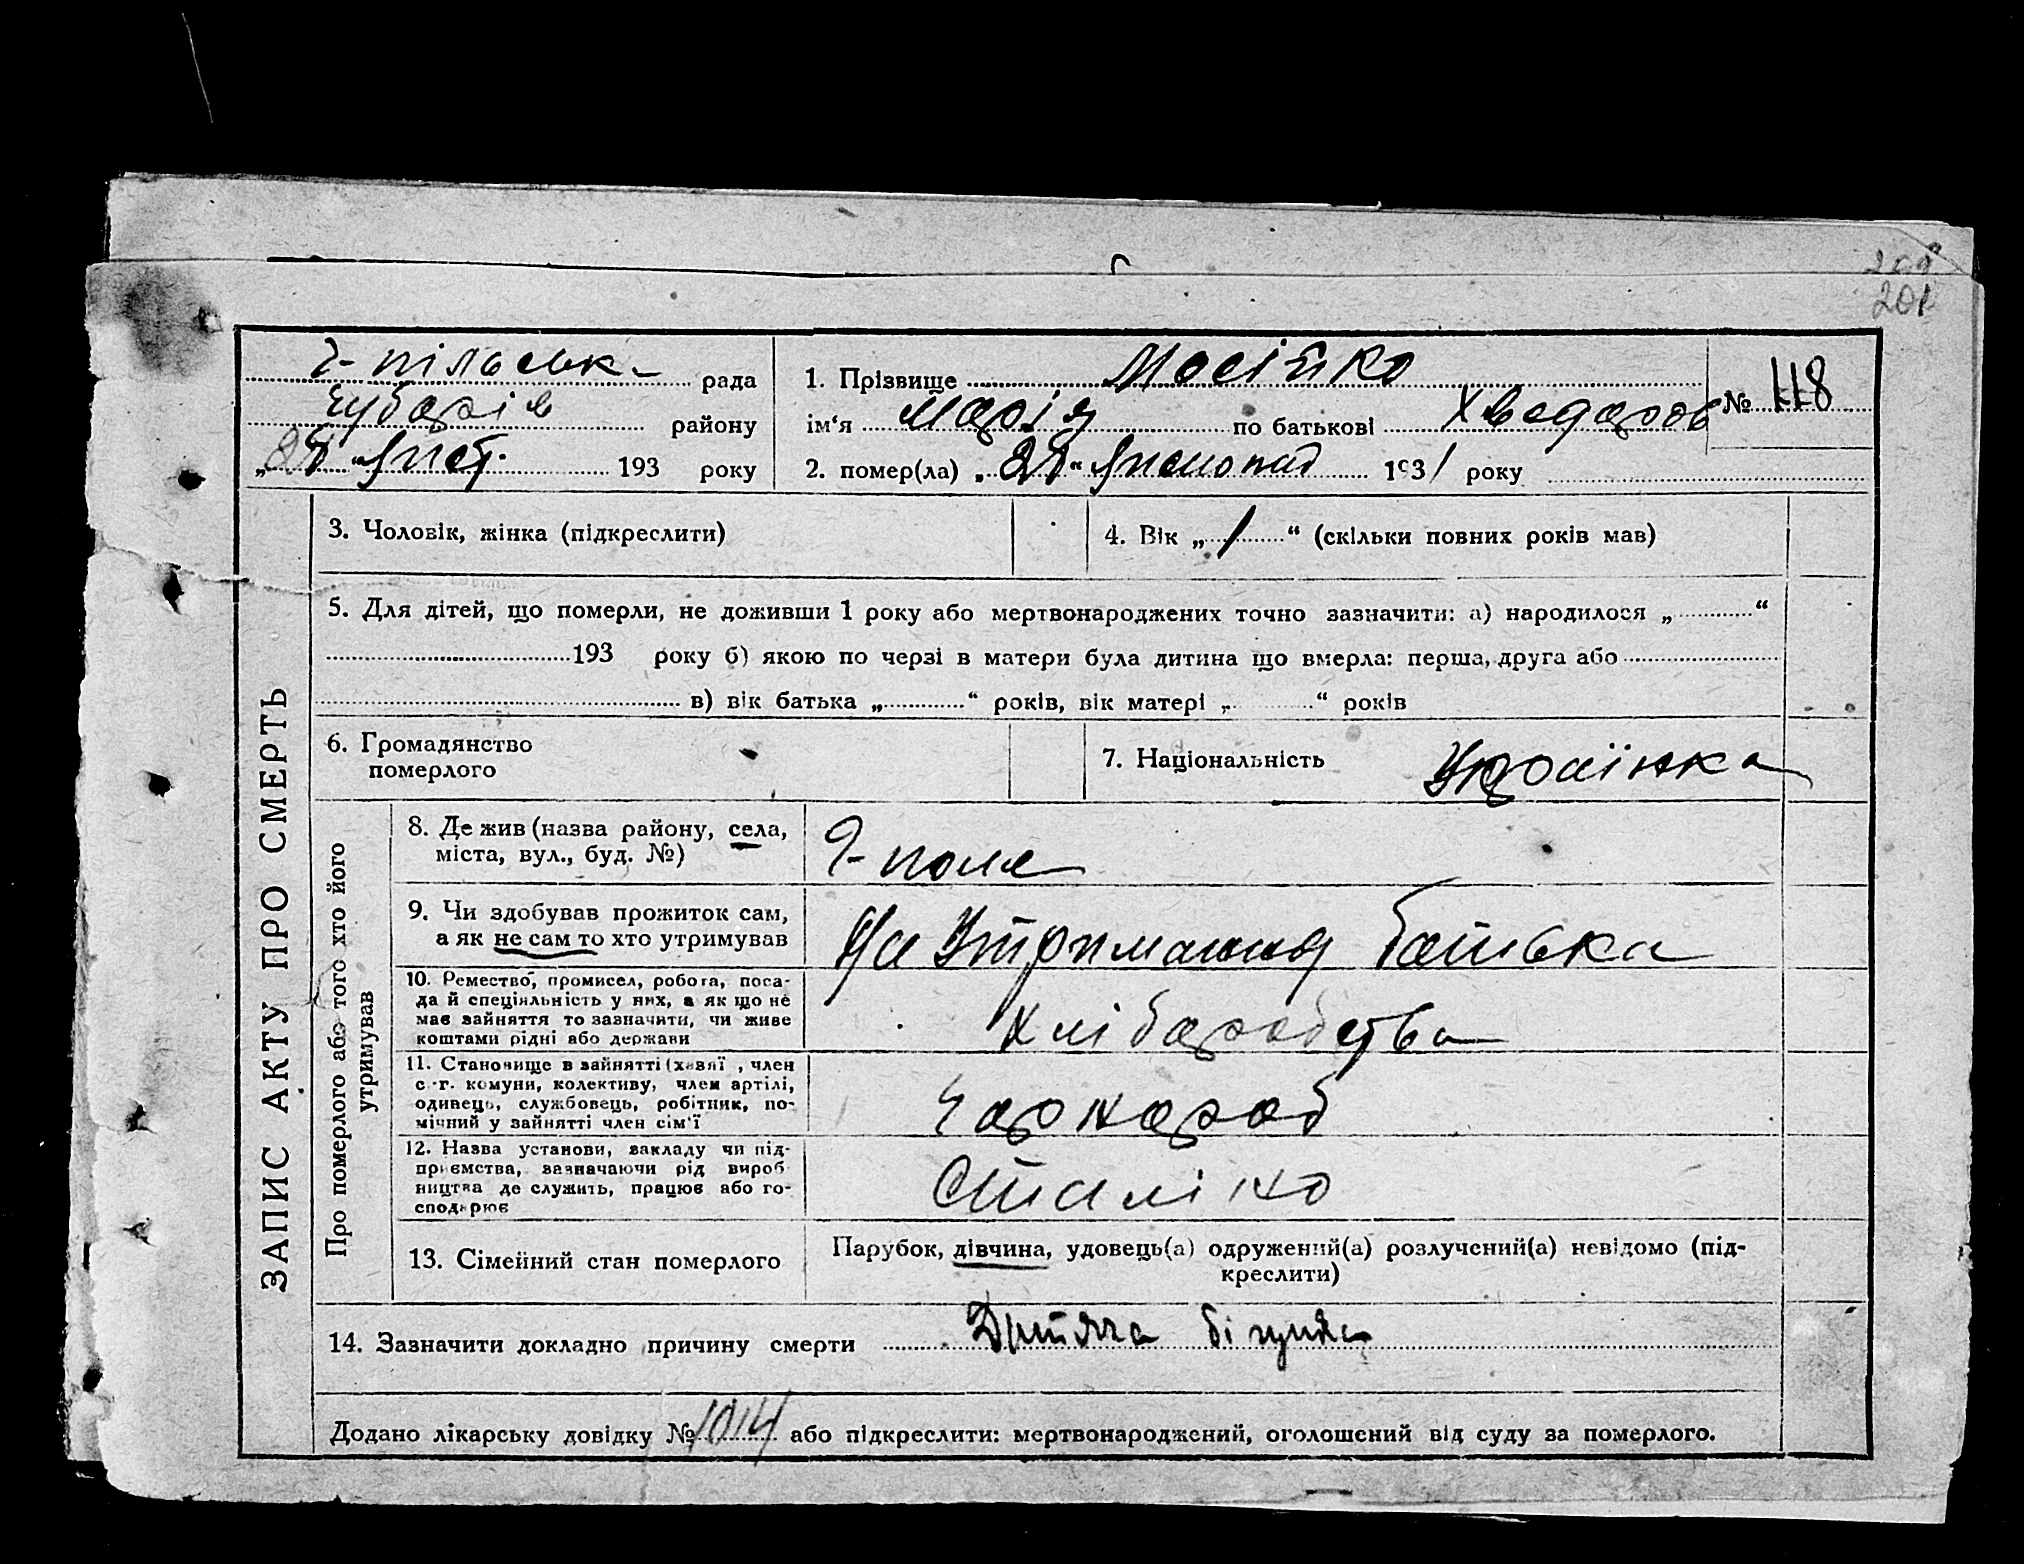 209
201
Г-пільськ рада
Чубарів району
„27“ лист. 193 року
1. Прізвище Мосійко
ім‘я Марія по батькові Хведоров
2. помер(ла) „27“ листопад 1931 року
№ 118
ЗАПИС АКТУ ПРО СМЕРТЬ
3. Чоловік, жінка (підкреслити)
4. Вік „1“ (скільки повних років мав)
5. Для дітей, що померли, не доживши 1 року або мертвонароджених точно зазначити: а) народилося „ “
193 року б) якою по черзі в матери була дитина що вмерла: перша, друга або
в) вік батька „ “ років, вік матері „ “ років
6. Громадянство
померлого
7. Національність Українка
Про померлого або того хто його
утримував
8. Де жив (назва району, села,
міста, вул., буд. №)
Г-поле
9. Чи здобував прожиток сам,
а як не сам то хто утримував
На Утримання батька
10. Ремество, промисел, робота, поса-
да й спеціяльність у них, а як що не
має зайняття то зазначити, чи живе
коштами рідні або держави
Хліборобства
11. Становище в зайнятті (хазяї , член
с.-г. комуни, колективу, член артілі,
одинець, службовець, робітник, по-
мічний у зайнятті член сім‘ї
Чорнороб
12. Назва установи, закладу чи під-
приємства, зазначаючи рід вироб
ництва де служить, працює або го-
сподарює
Сталіно
13. Сімейний стан померлого
Парубок, дівчина, удовець(а) одружений(а) розлучений(а) невідомо (під-
креслити)
14. Зазначити докладно причину смерти Дитяча
Додано лікарську довідку № 1014 або підкреслити: мертвонароджений, оголошений від суду за померлого.